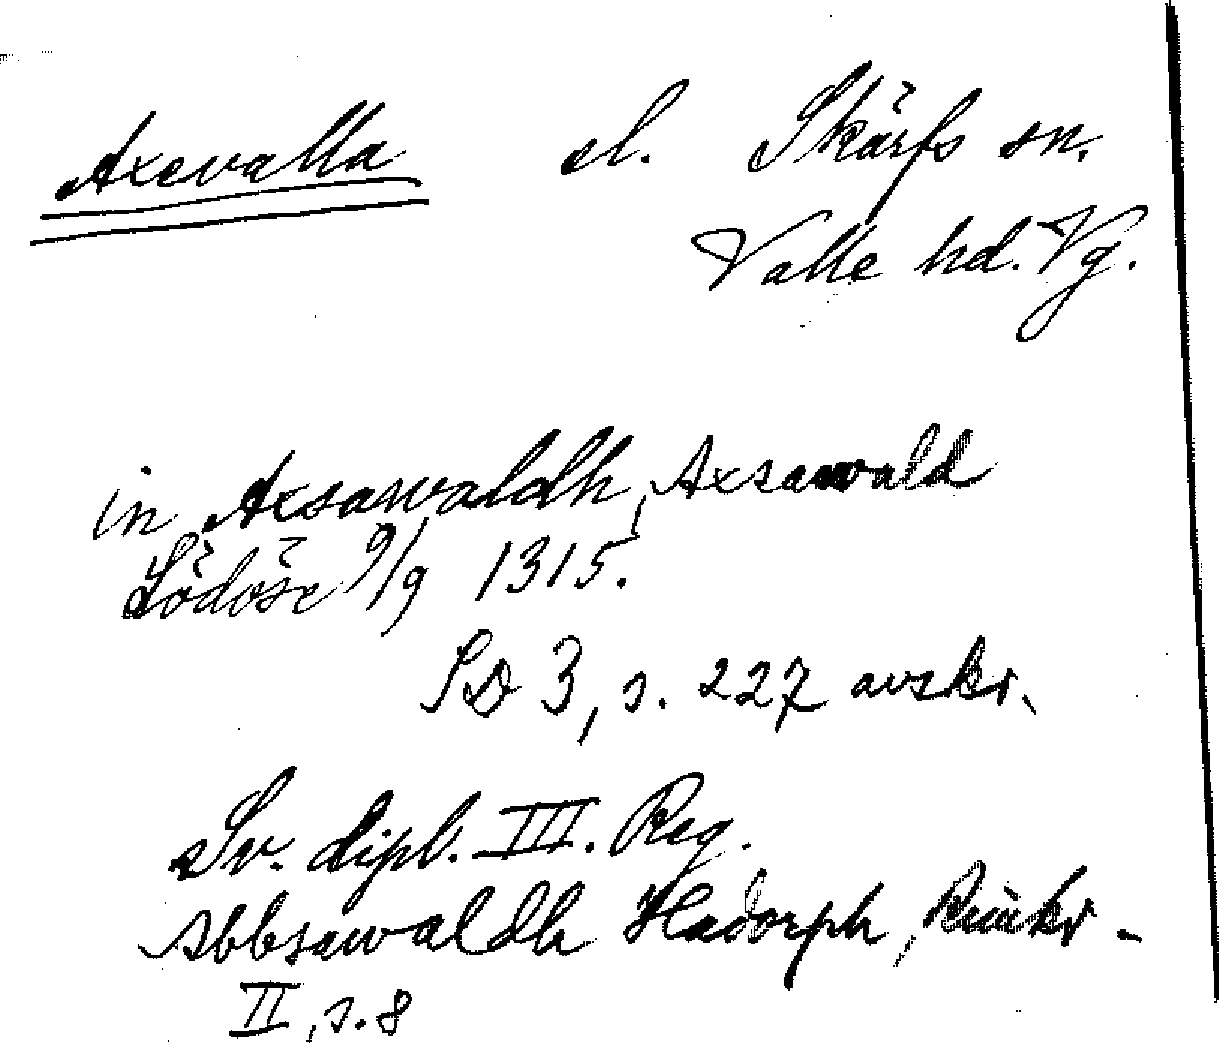 Axevalla sl. Skärfs sn.
Valle hd. Vg.
in Axsawaldh, Axsawald
Lödöse 9/9 1315.
SD 3, s. 227 avskr.
Sv. dipl. III. Reg.
Abbsawaldh Hadorph, Rimkr.
II, s. 8